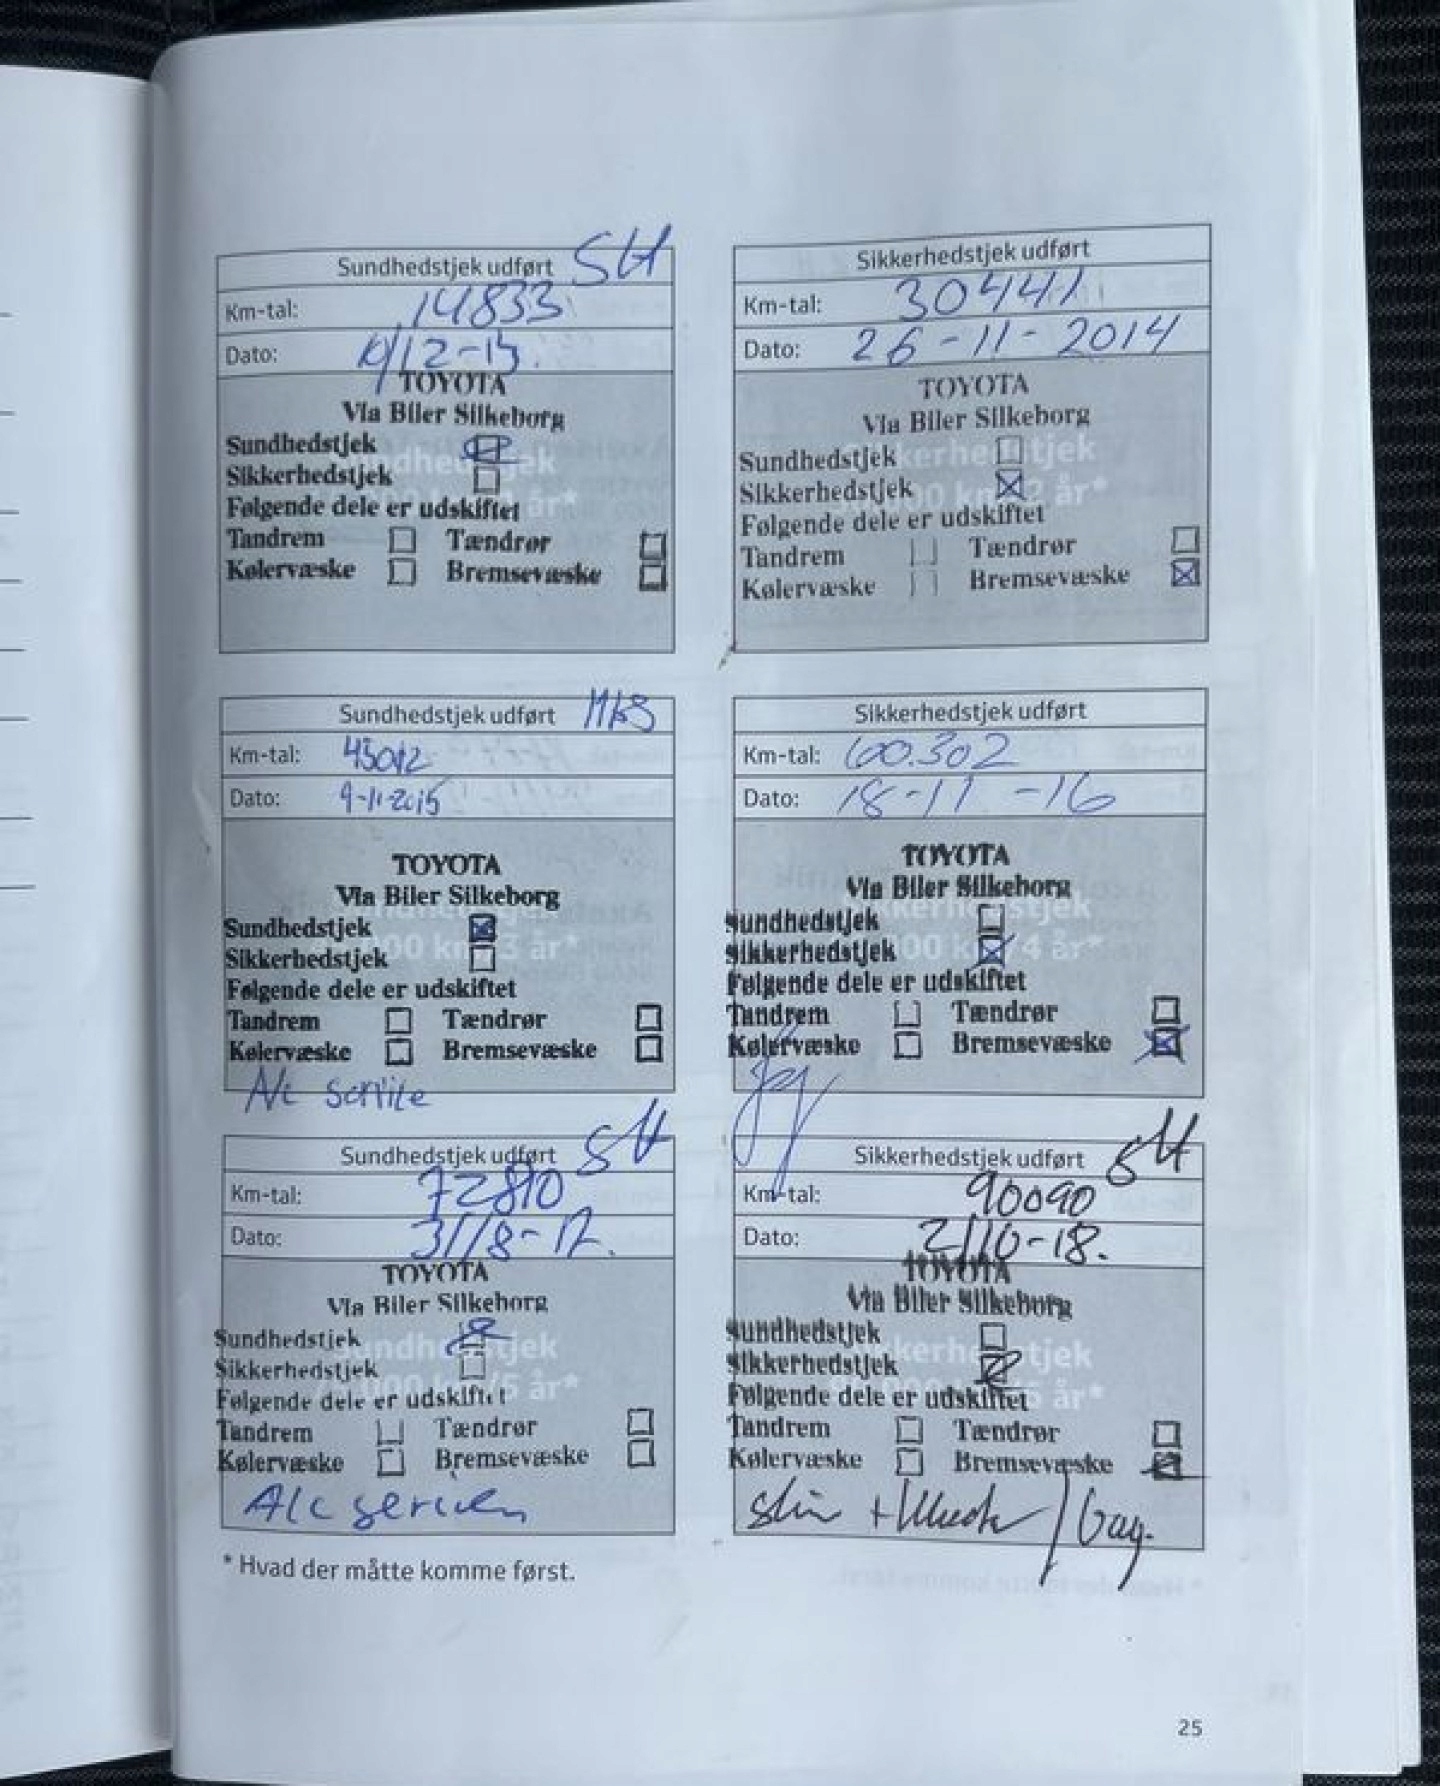 Sundhedstjek udført SH
Km-tal: 14833
Dato: 10/12-13.
TOYOTA
Via Biler Silkeborg
Sundhedstjek
Sikkerhedstjek
Følgende dele er udskiftet
Tandrem Tændrør
Kølervæske Bremsevæske
Sikkerhedstjek udført
Km-tal: 30441
Dato: 26-11-2014
TOYOTA
Via Biler Silkeborg
Sundhedstjek
Sikkerhedstjek
Følgende dele er udskiftet
Tandrem Tændrør
Kølervæske Bremsevæske
Sundhedstjek udført MKS
Km-tal: 45012
Dato: 9-11-2015
TOYOTA
Via Biler Silkeborg
Sundhedstjek
Sikkerhedstjek
Følgende dele er udskiftet
Tandrem Tændrør
Kølervæske Bremsevæske
A/c service
Sikkerhedstjek udført
Km-tal: 60.302
Dato: 18-11-16
TOYOTA
Via Biler Silkeborg
Sundhedstjek
Sikkerhedstjek
Følgende dele er udskiftet
Tandrem Tændrør
Kølervæske Bremsevæske
Sundhedstjek udført SH
Km-tal: 72810
Dato: 31/8-17.
TOYOTA
Via Biler Silkeborg
Sundhedstjek
Sikkerhedstjek
Følgende dele er udskiftet
Tandrem Tændrør
Kølervæske Bremsevæske
A/c service
Sikkerhedstjek udført SH
Km-tal: 90090
Dato: 2/10-18.
TOYOTA
Via Biler Silkeborg
Sundhedstjek
Sikkerhedstjek
Følgende dele er udskiftet
Tandrem Tændrør
Kølervæske Bremsevæske
* Hvad der måtte komme først.
25